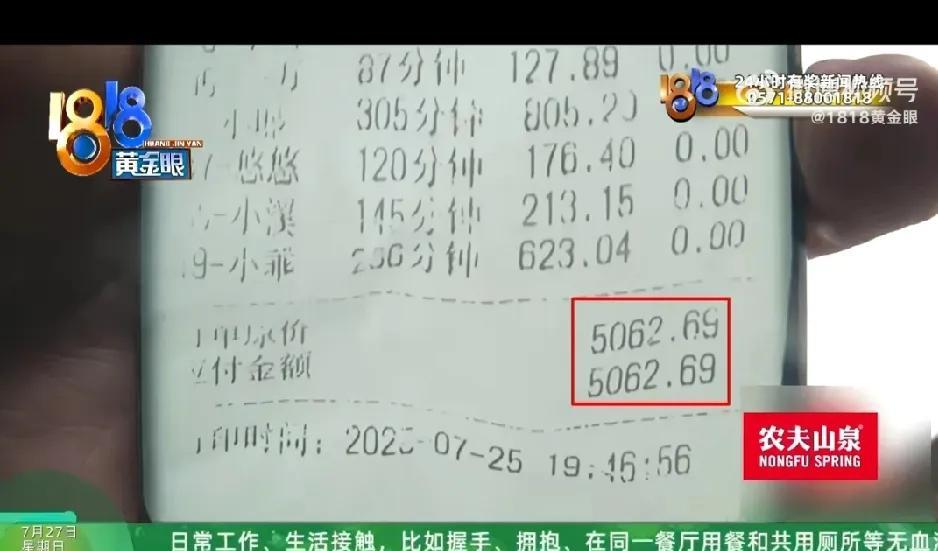 87分钟 127.89 0.00
305分钟 805.20
悠悠 120分钟 176.40 0.00
小溪 145分钟 213.15 0.00
9-小乖 256分钟 623.04 0.00
5062.69
付金额 5062.69
印时间: 2025-07-25 19:46:56
1818
HUANG JIN YAN
黄金眼
1818
24小时有奖新闻热线
0571-88001818
视频号
@1818黄金眼
农夫山泉
NONGFU SPRING
7月27日
星期日
日常工作、生活接触,比如握手、拥抱、在同一餐厅用餐和共用厕所等无血